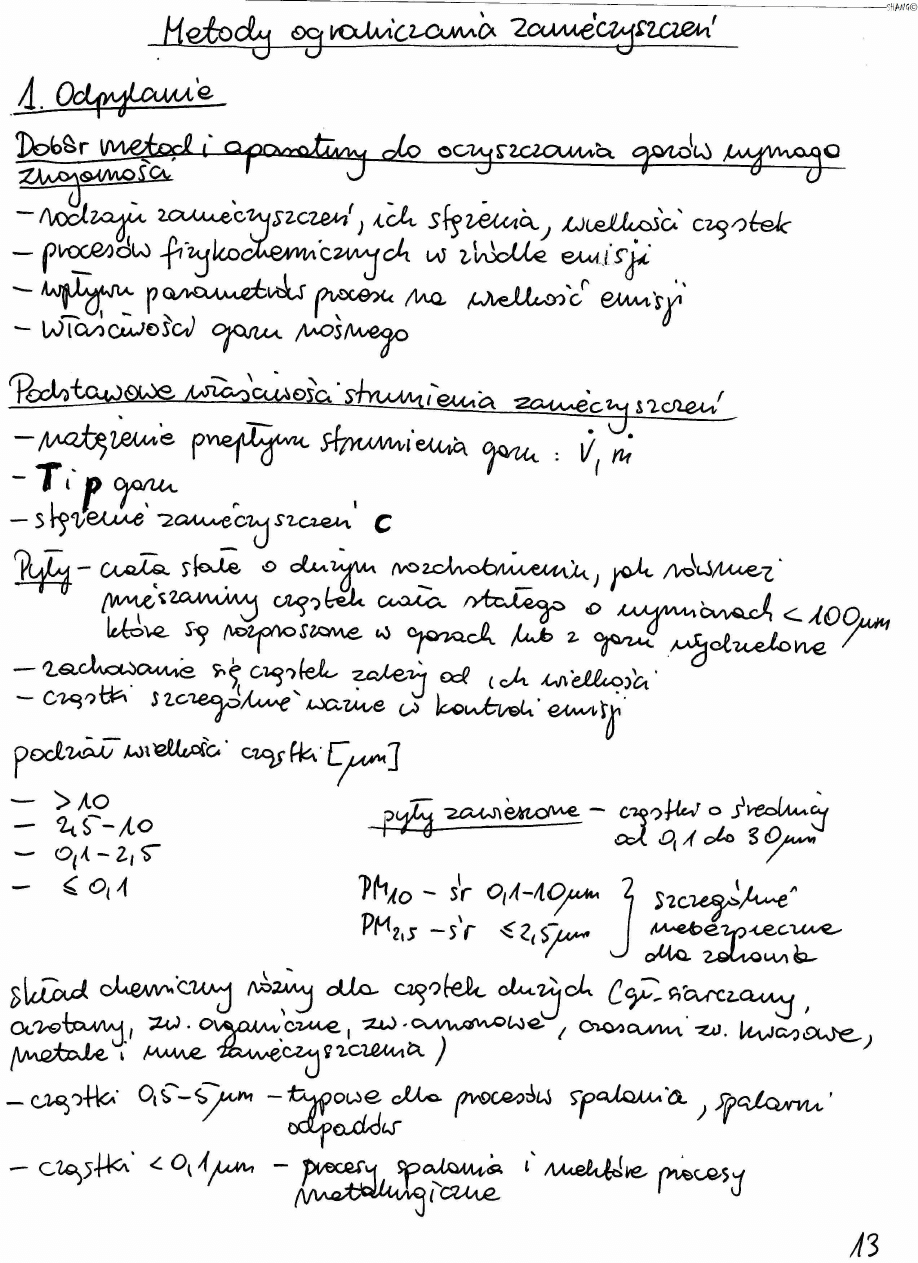 SHANG©
Metody ograniczania zanieczyszczeń
1. Odpylanie
Dobór metod i aparatury do oczyszczania gazów wymaga
znajomości
- rodzaju zanieczyszczeń, ich stężenia, wielkości cząstek
- procesów fizykochemicznych w źródle emisji
- wpływu parametrów procesu na wielkość emisji
- właściwości gazu nośnego
Podstawowe właściwości strumienia zanieczyszczeń
- natężenie przepływu strumienia gazu : V̇, ṁ
- T i p gazu
- stężenie zanieczyszczeń c
Pyły - ciała stałe o dużym rozdrobnieniu, jak również
mieszaniny cząstek ciała stałego o wymiarach < 100 μm
które są rozproszone w gazach lub z gazu wydzielone
- zachowanie się cząstek zależy od ich wielkości
- cząstki szczególnie ważne w kontroli emisji
podział wielkości cząstki [μm]
- > 10
- 2,5 - 10
- 0,1 - 2,5
- ≤ 0,1
pyły zawieszone - cząstki o średnicy
od 0,1 do 30 μm
PM10 - śr 0,1-10 μm } szczególnie
PM2,5 - śr ≤ 2,5 μm niebezpieczne
dla zdrowia
skład chemiczny różny dla cząstek dużych (gł. siarczany,
azotany, zw. organiczne, zw. amonowe, czasami zw. kwasowe,
metale i inne zanieczyszczenia)
- cząstki 0,5-5 μm - typowe dla procesów spalania, spalarni
odpadów
- cząstki < 0,1 μm - procesy spalania i niektóre procesy
metalurgiczne
13